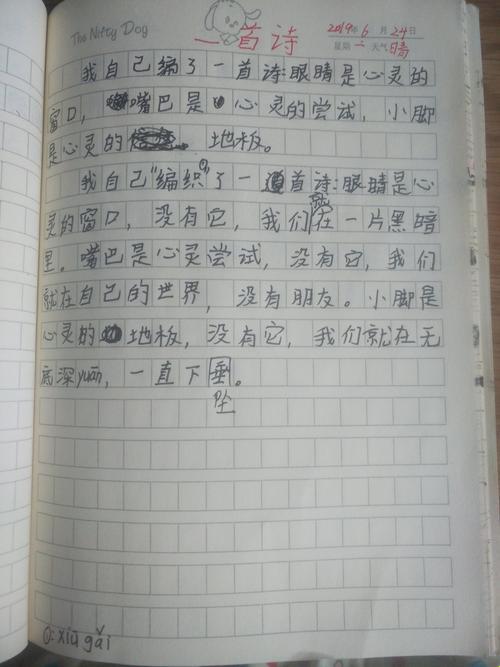 The Nifty Dog
一首诗
2019年6月24日
星期二 天气晴
我自己编了一首诗:眼睛是心灵的
窗口,嘴巴是心灵的尝试,小脚
是心灵的地板。
我自己"编织"①了一首诗:眼睛是心
灵的窗口,没有它,我们就在一片黑暗
里。嘴巴是心灵尝试,没有它,我们
就在自己的世界,没有朋友。小脚是
心灵的地板,没有它,我们就在无
底深yuān,一直下垂。
坠
①:xiū gǎi